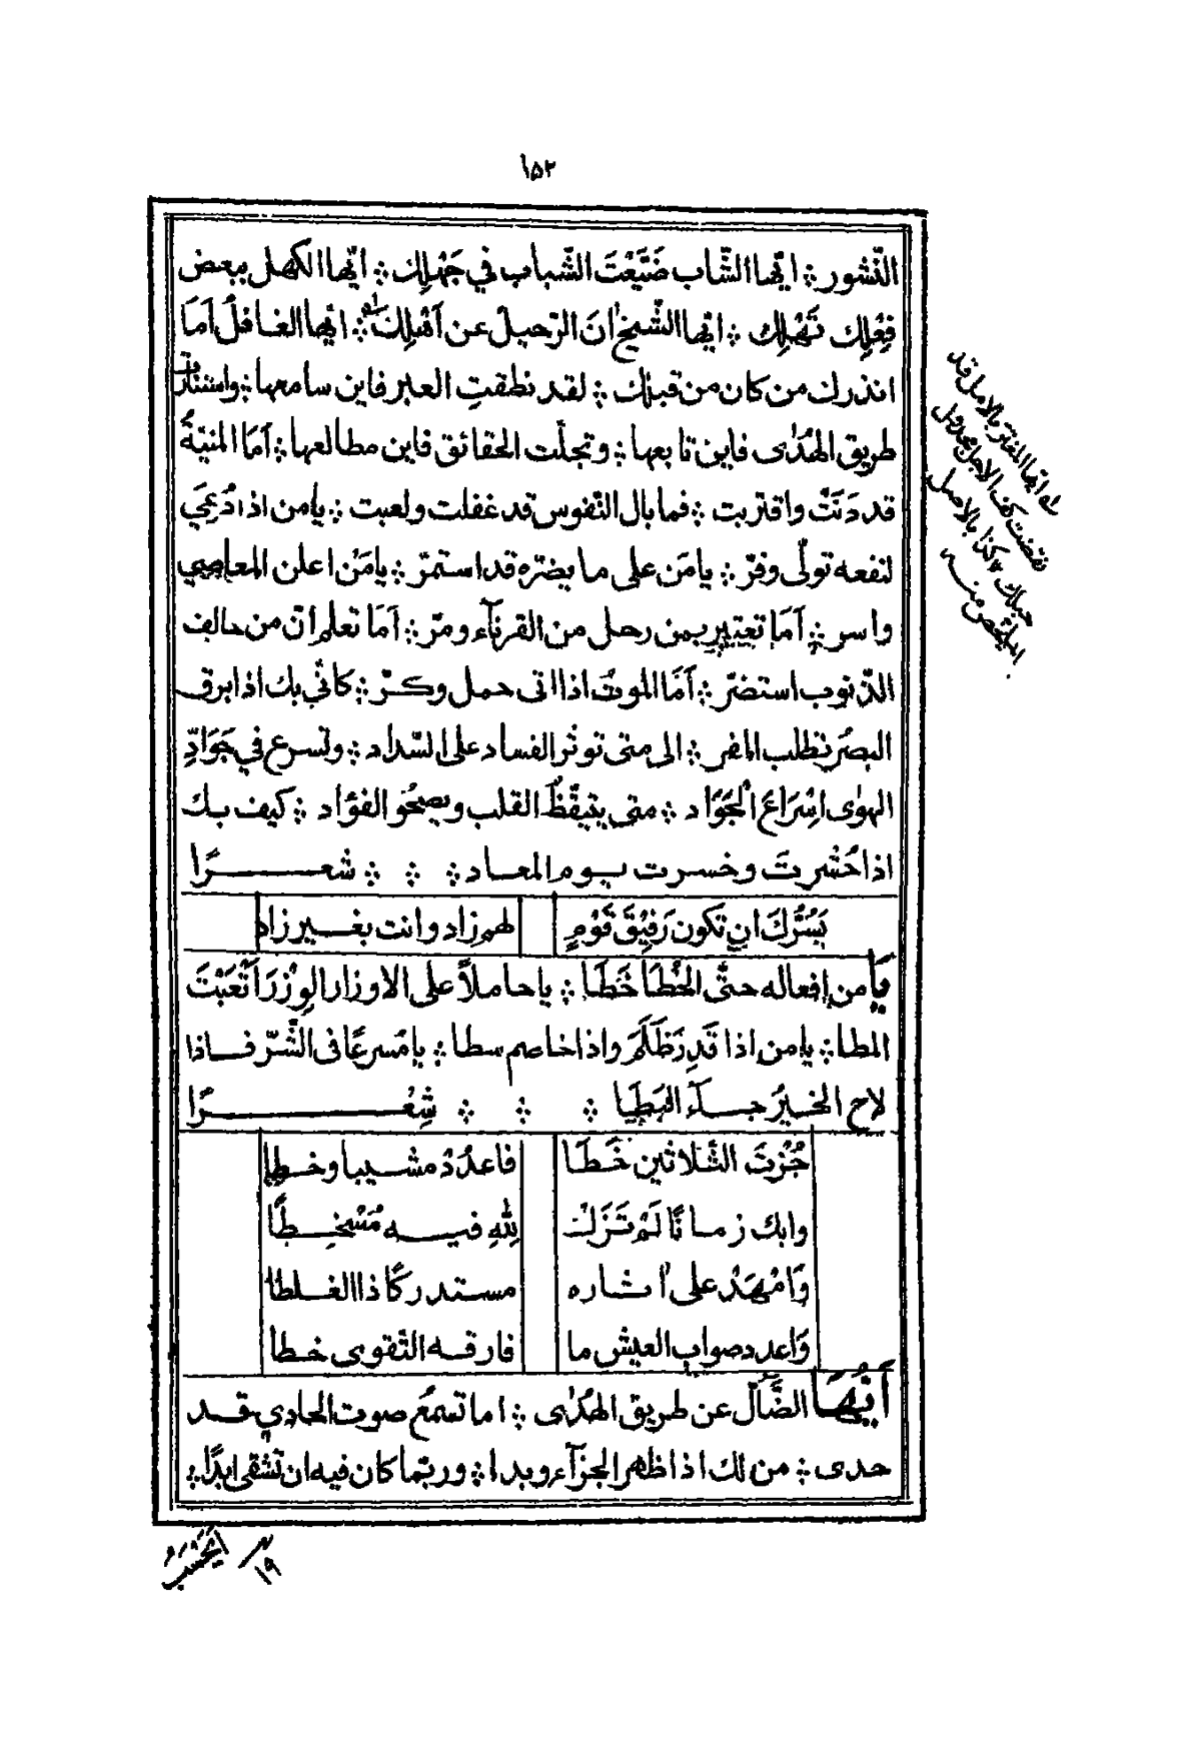 ١٥٢
النّشور ؞ ايّها الشّاب ضَيَّعْتَ الشّباب في جَهْلِكَ ؞ ايّها الكهل ببعض
فِعْلِكَ تَهْلِك ؞ ايّها الشّيخ اٰنَ الرّحيل عن اَهْلِكَ ؞ ايّها الغافل اَمَا
انذرك من كان من قبلك ؞ لقد نطقتِ العبر فاين سامعها ؞ واستنار
طريق الهُدٰى فاين تابعها ؞ وتجلّت الحقائق فاين مطالعها ؞ اَمَا المنيّةُ
قد دَنَتْ واقتربت ؞ فما بال النّفوس قد غفلت ولعبت ؞ يا من اذا دُعِيَ
لنفعه تولّى وفرّ ؞ يا مَن على ما يضرّه قد استمرّ ؞ يا مَنْ اعلن المعاصي
واسر ؞ اَمَا تعتبر بمن رحل من القرنآء ومرّ ؞ اَمَا تعلم انّ من حالف
الذّنوب استضرّ ؞ اَمَا الموتُ اذا اتى حمل وكرّ ؞ كانّي بك اذا برق
البصَر تطلب المفر ؞ الى متى توثر الفساد على السّداد ؞ وتسرع في جَوَادِّ
الهوٰى اسْرَاعَ الْجَوَاد ؞ متى يتيقّظُ القلب ويصحُو الفؤاد ؞ كيف بك
اذا حُشرتَ وخسرت يوم المعاد ؞ ؞ ؞ شعرًا
يَسُرُّكَ ان تكون رَفِيْقَ قَوْمٍ لهم زاد وانت بغير زاد
يَا من افعاله حتّى الخُطَا خَطَا ؞ يا حاملاً على الاوزار الوِزْرَ اَتْعَبْتَ
المطا ؞ يا من اذا قَدِرَ ظَلَمَ واذا خاصم سطا ؞ يا مُسرعًا فى الشّر فاذا
لاح الخيرُ جآء البَطِيَا ؞ ؞ ؞ شِعْرًا
جُزْتَ الثّلاثين خَطَا فاعدُدْ مشيبا وخطا
وابك زمانًا لَمْ تَزَلْ لِلّٰهِ فيه مُسْخِطًا
وَامْهَدْ على اٰثاره مستدركًا ذا الغلطا
وَاعدد صواب العيش ما فارقه التّقوى خطا
اَيُّهَا الضّالّ عن طريق الهُدٰى ؞ اما تسمعُ صوت الحادي قد
حدى ؞ من لك اذا ظهر الجزآء وبدا ؞ وربّما كان فيه ان تشقى ابدًا ؞
له ايّها المغتر بالامل قد
نقضت كف الاجل مجدول
حبلك ؞ كذا بالاصل
الملخص منه
١٩